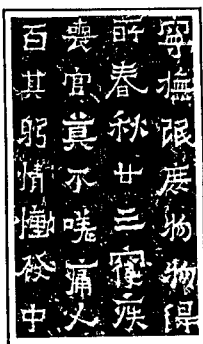 寧撫氓庶物物得
所春秋廿三寢疾
喪官莫不嗟痛人
百其躬情慟發中